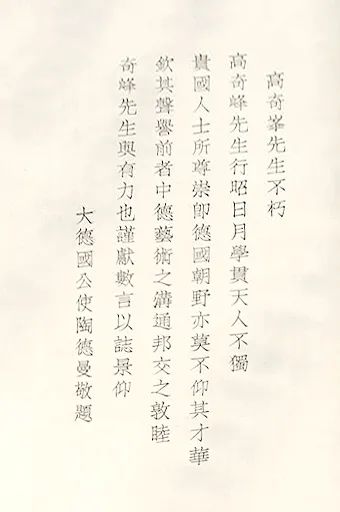 高奇峯先生不朽
高奇峰先生行昭日月學貫天人不獨
貴國人士所尊崇卽德國朝野亦莫不仰其才華
欽其聲譽前者中德藝術之溝通邦交之敦睦
奇峰先生與有力也謹獻數言以誌景仰
大德國公使陶德曼敬題